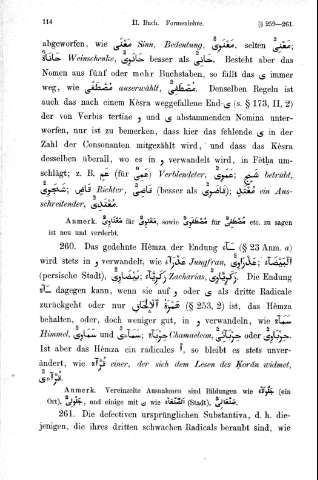 114 II. Buch. Formenlehre. [§ 259—261.
abgeworfen, wie مَعْنًى Sinn, Bedeutung, مَعْنَوِىٌّ, selten مَعْنِىٌّ;
حَانَةٌ Weinschenke, حَانَوِىٌّ besser als حَانِىٌّ. Besteht aber das
Nomen aus fünf oder mehr Buchstaben, so fällt das ى immer
weg, wie مُصْطَفًى auserwählt, مُصْطَفِىٌّ. Denselben Regeln ist
auch das nach einem Kèsra weggefallene End-ى (s. § 173, II, 2)
der von Verbis tertiae و und ى abstammenden Nomina unter-
worfen, nur ist zu bemerken, dass hier das fehlende ى in der
Zahl der Consonanten mitgezählt wird, und dass das Kèsra
desselben überall, wo es in و verwandelt wird, in Fètḥa um-
schlägt; z. B. عَمٍ (für عَمِىٌ) Verblendeter, عَمَوِىٌّ; شَجٍ betrübt,
شَجَوِىٌّ; قَاضٍ Richter, قَاضِىٌّ (besser als قَاضَوِىٌّ); مُعْتَدٍ ein Aus-
schreitender, مُعْتَدِىٌّ.
Anmerk. مَعْنَاوِىٌّ für مَعْنَوِىٌّ, sowie مُصْطَفَوِىٌّ für مُصْطَفِىٌّ etc. zu sagen
ist neu und verderbt.
260. Das gedehnte Hèmza der Endung ـَآءُ (§ 23 Anm. a)
wird stets in و verwandelt, wie عَذْرَآءُ Jungfrau, عَذْرَاوِىٌّ; اَلْبَيْضَآءُ
(persische Stadt), بَيْضَاوِىٌّ; زَكَرِيَّآءُ Zacharias, زَكَرِيَّاوِىٌّ. Die Endung
ـَآءٌ dagegen kann, wenn sie auf و oder ى als dritte Radicale
zurückgeht oder nur هَمْزَةُ ٱلْإِلْحَاقِ (§ 253, 2) ist, das Hèmza
behalten, oder, doch weniger gut, in و verwandeln, wie سَمَآءٌ
Himmel, سَمَآئِىٌّ und سَمَاوِىٌّ; حِرْبَآءٌ Chamaeleon, حِرْبَآئِىٌّ oder حِرْبَاوِىٌّ.
Ist aber das Hèmza ein radicales أ, so bleibt es stets unver-
ändert, wie قُرَّآءٌ einer, der sich dem Lesen des Korân widmet,
قُرَّآئِىٌّ.
Anmerk. Vereinzelte Ausnahmen sind Bildungen wie جَلُولَآءُ (ein
Ort), جَلُولِىٌّ, und einige mit ن wie اَلصَّنْعَآءُ (Stadt), صَنْعَانِىٌّ.
261. Die defectiven ursprünglichen Substantiva, d. h. die-
jenigen, die ihres dritten schwachen Radicals beraubt sind, wie